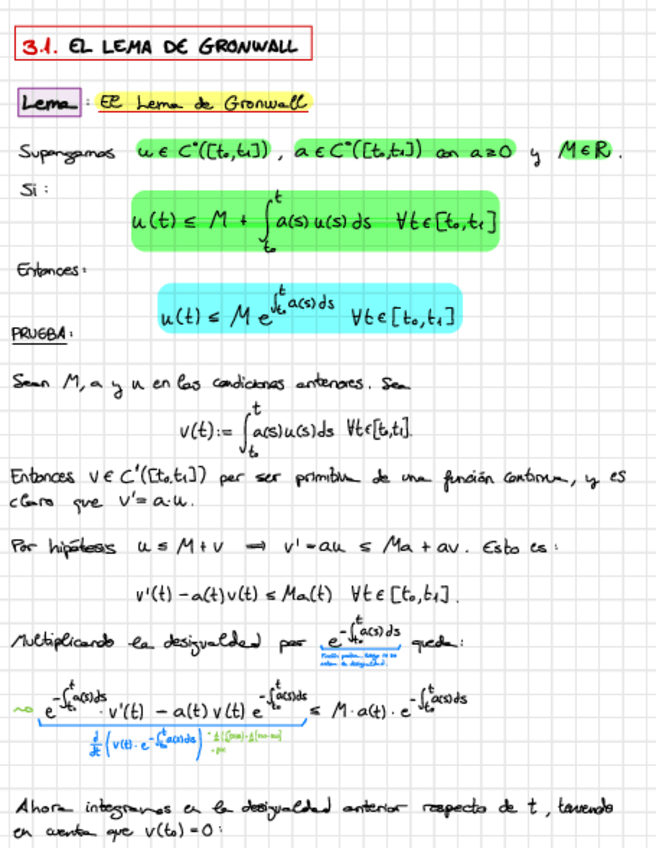 3.1. EL LEMA DE GRONWALL
Lema : El Lema de Gronwall
Supongamos u ∈ C°([t₀,t₁]), a ∈ C°([t₀,t₁]) con a≥0 y M∈ℝ.
Si:
u(t) ≤ M + ∫_{t₀}^{t} a(s) u(s) ds ∀t∈[t₀,t₁]
Entonces:
u(t) ≤ M e^{∫_{t₀}^{t} a(s) ds} ∀t∈[t₀,t₁]
PRUEBA:
Sean M, a y u en las condiciones anteriores. Sea
v(t) := ∫_{t₀}^{t} a(s)u(s)ds ∀t∈[t₀,t₁].
Entonces v∈C¹([t₀,t₁]) por ser primitiva de una función continua, y es
claro que v'= a·u.
Por hipótesis u ≤ M+v ⟹ v'=au ≤ Ma + av. Esto es:
v'(t) - a(t)v(t) ≤ Ma(t) ∀t∈[t₀,t₁].
Multiplicando la desigualdad por e^{-∫_{t₀}^{t} a(s) ds} queda:
e^{-∫_{t₀}^{t} a(s)ds} · v'(t) - a(t) v(t) e^{-∫_{t₀}^{t} a(s)ds} ≤ M·a(t)·e^{-∫_{t₀}^{t} a(s)ds}
d/dt (v(t)·e^{-∫_{t₀}^{t} a(s)ds})
Ahora integramos en la desigualdad anterior respecto de t, teniendo
en cuenta que v(t₀)=0: